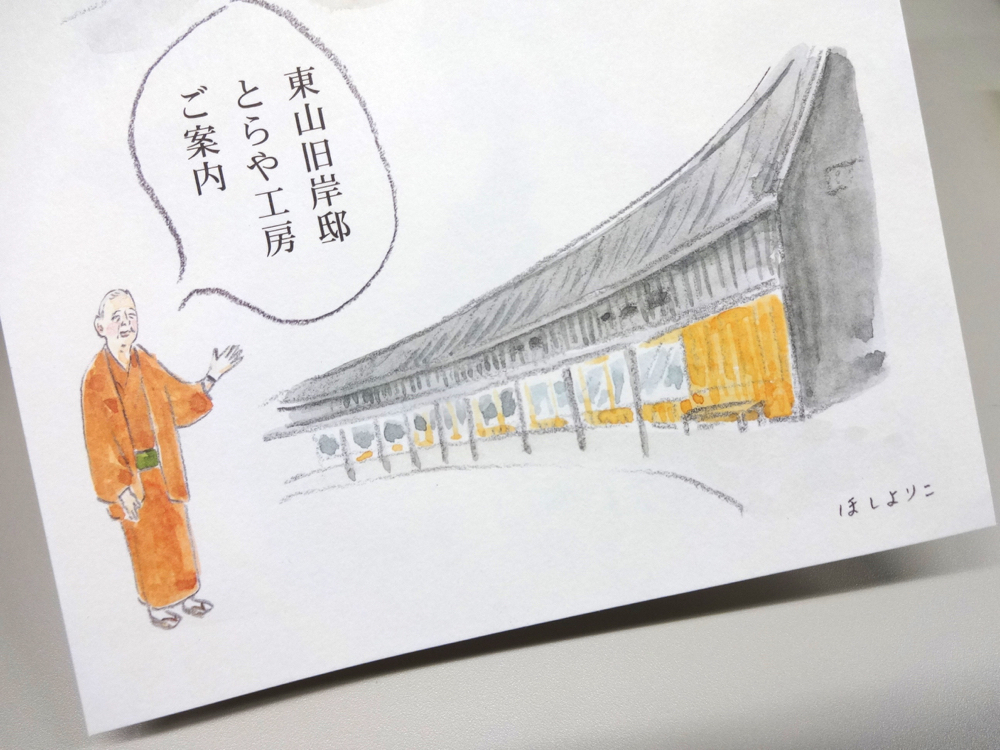 東山旧岸邸
とらや工房
ご案内
ほしよりこ